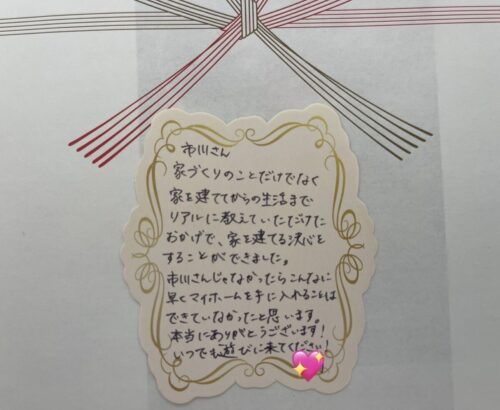 市川さん
家づくりのことだけでなく
家を建ててからの生活まで
リアルに教えていただけた
おかげで、家を建てる決心を
することができました。
市川さんじゃなかったらこんなに
早くマイホームを手に入れることは
できていなかったと思います。
本当にありがとうございます!
いつでも遊びに来てください!